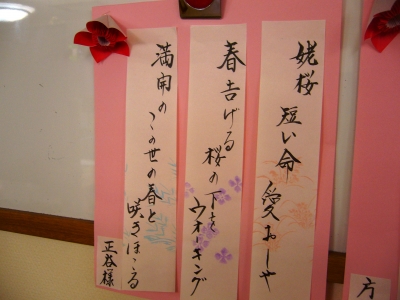 姥桜 短い命 愛おしや
春告げる 桜の下を ウオーキング
満開の この世の春と 咲きほこる
正谷様
方